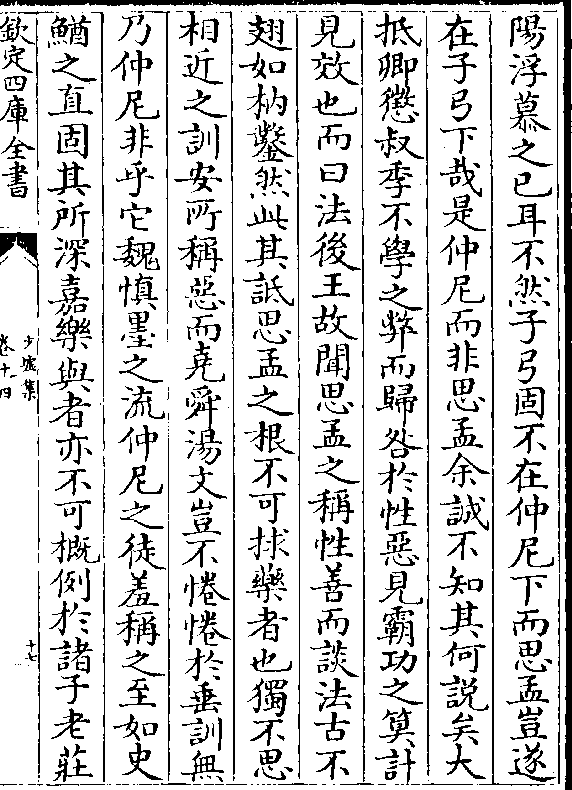 陽浮慕之已耳不然子弓固不在仲尼下而思孟豈遂
在子弓下哉是仲尼而非思孟余誠不知其何說矣大
抵卿懲叔季不學之弊而歸咎於性惡見霸功之筭計
見效也而曰法後王故聞思孟之稱性善而談法古不
翅如枘鑿然此其詆思孟之根不可捄藥者也獨不思
相近之訓安所稱惡而堯舜湯文豈不惓惓於垂訓無
乃仲尼非乎它魏慎墨之流仲尼之徒羞稱之至如史
鰌之直固其所深嘉樂與者亦不可概例於諸子老莊
欽定四庫全書
少墟集
卷十四
十七